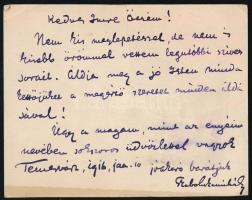 Kedves Imre Öcsém!
Nem kis meglepetéssel, de nem is
kisebb örömmel vettem legutóbbi szives
sorait. Áldja meg a jó Isten mind a
kettőjüket a megértő szeretet minden áldá
sával!
Úgy a magam, mint az enyéim
nevében sokszoros üdvözlettel vagyok
Temesvár, 1916, jan. 10 jóakaró barátjuk